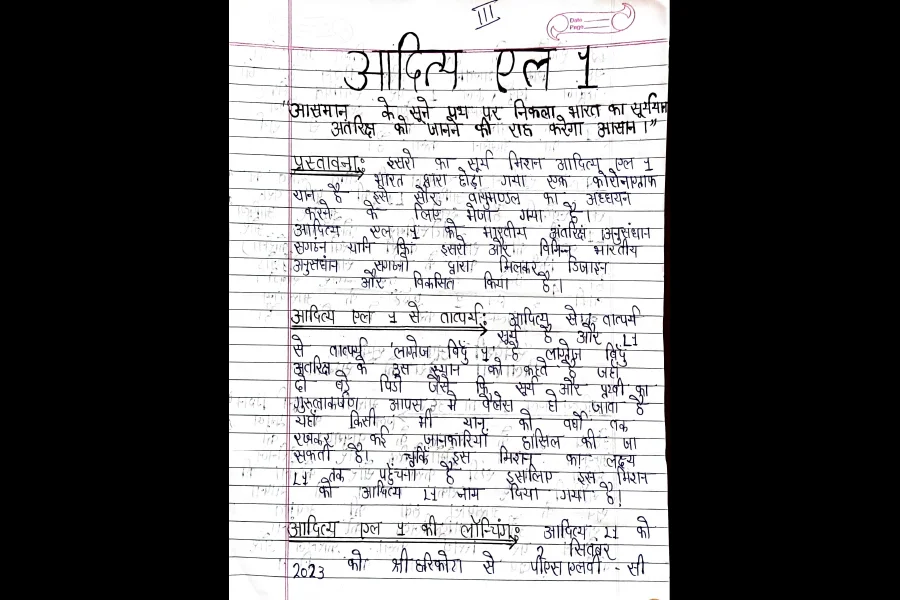 III
Date
Page
आदित्य एल 1
"आसमान के सूने पथ पर निकला भारत का सूर्ययान
अंतरिक्ष को जानने की राह करेगा आसान।"
प्रस्तावना: इसरो का सूर्य मिशन आदित्य एल 1
भारत द्वारा छोड़ा गया एक कोरोनाग्राफ
यान है इसे सौर वायुमण्डल का अध्धयन
करने के लिए भेजा गया है।
आदित्य एल 1 को भारतीय अंतरिक्ष अनुसंधान
संगठन यानि कि इसरो और विभिन्न भारतीय
अनुसंधान संगठनो द्वारा मिलकर डिजाइन
और विकसित किया है।
आदित्य एल 1 से तात्पर्य: आदित्य से तात्पर्य
सूर्य है और L1
से तात्पर्य 'लाग्रेंज बिंदु 1' है लाग्रेंज बिंदु
अंतरिक्ष के इस स्थान को कहते है जहां
दो बड़े पिंडो जैसे कि सूर्य और पृथ्वी का
गुरुत्वाकर्षण आपस मे बैलेंस हो जाता है
यहां किसी भी यान को वर्षों तक
रखकर कई जानकारियां हासिल की जा
सकती है। चूकिं इस मिशन का लक्ष्य
L1 तक पहुँचना है इसलिए इस मिशन
को आदित्य L1 नाम दिया गया है।
आदित्य एल 1 की लॉन्चिंग: आदित्य L1 को
2 सितंबर
2023 को श्री हरिकोटा से पीएसएलवी - सी